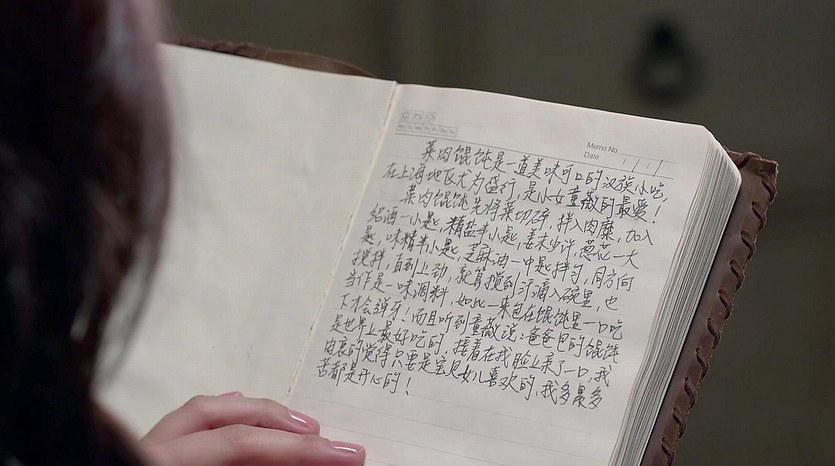 Memo No.
Date
菜肉馄饨是一道美味可口的汉族小吃,
在上海地区尤为盛行,是小女童薇的最爱!
菜肉馄饨先将菜切碎,拌入肉糜,加入
绍酒一小匙,精盐半小匙,姜末少许,葱花一大
匙,味精半小匙,芝麻油一中匙拌匀,同方向
搅拌,直到上劲,就算搅到汗滴入碗里,也
当作是一味调料,如此一来包在馄饨里一口吃
下才会弹牙!而且听到童薇说:爸爸包的馄饨
是世界上最好吃的,接着在我脸上亲了一口,我
由衷的觉得只要是宝贝女儿喜欢的,我多累多
苦都是开心的!